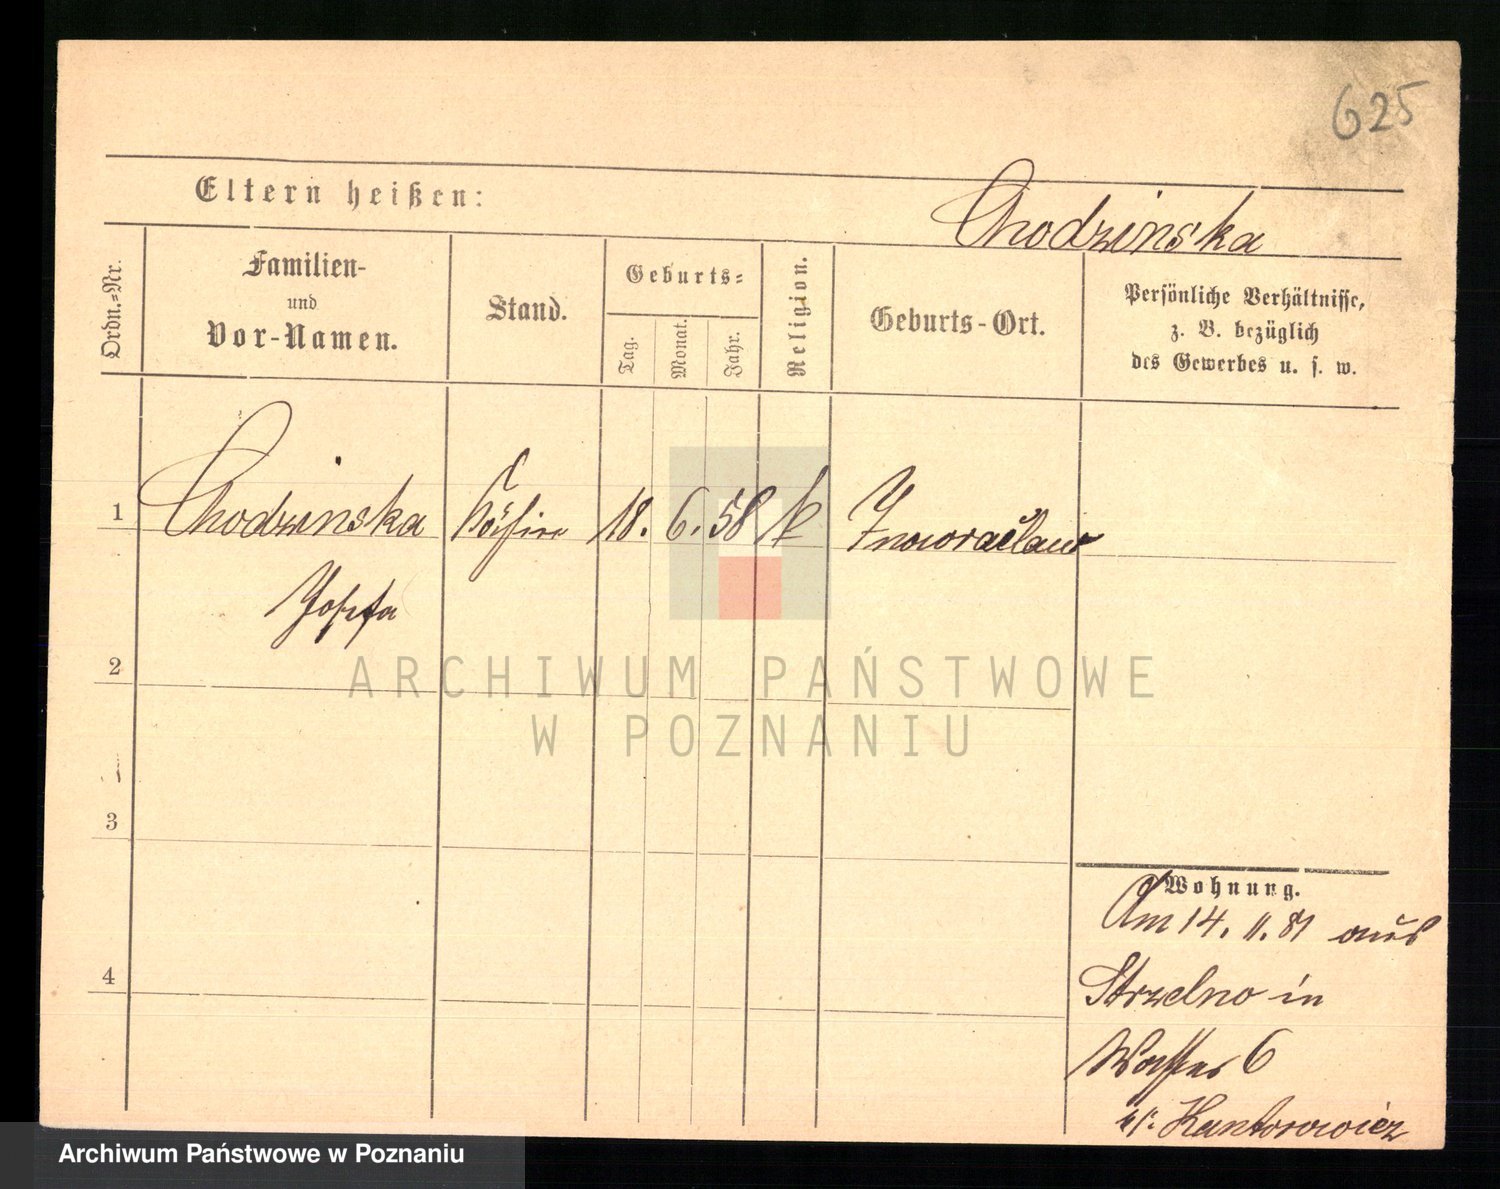 625
Eltern heißen:
Chodzinska
Ordn.-Nr.
Familien-
und
Vor-Namen.
Stand.
Geburts-
Tag.
Monat.
Jahr.
Religion.
Geburts-Ort.
Persönliche Verhältnisse,
z. B. bezüglich
des Gewerbes u. s. w.
1
Chodzinska
Köchin
18. 6. 58
k
Inowraclaw
Josefa
2
ARCHIWUM PAŃSTWOWE
W POZNANIU
3
Wohnung.
Am 14. 11. 81 aus
4
Strzelno in
Wasser 6
Kantorowicz
Archiwum Państwowe w Poznaniu